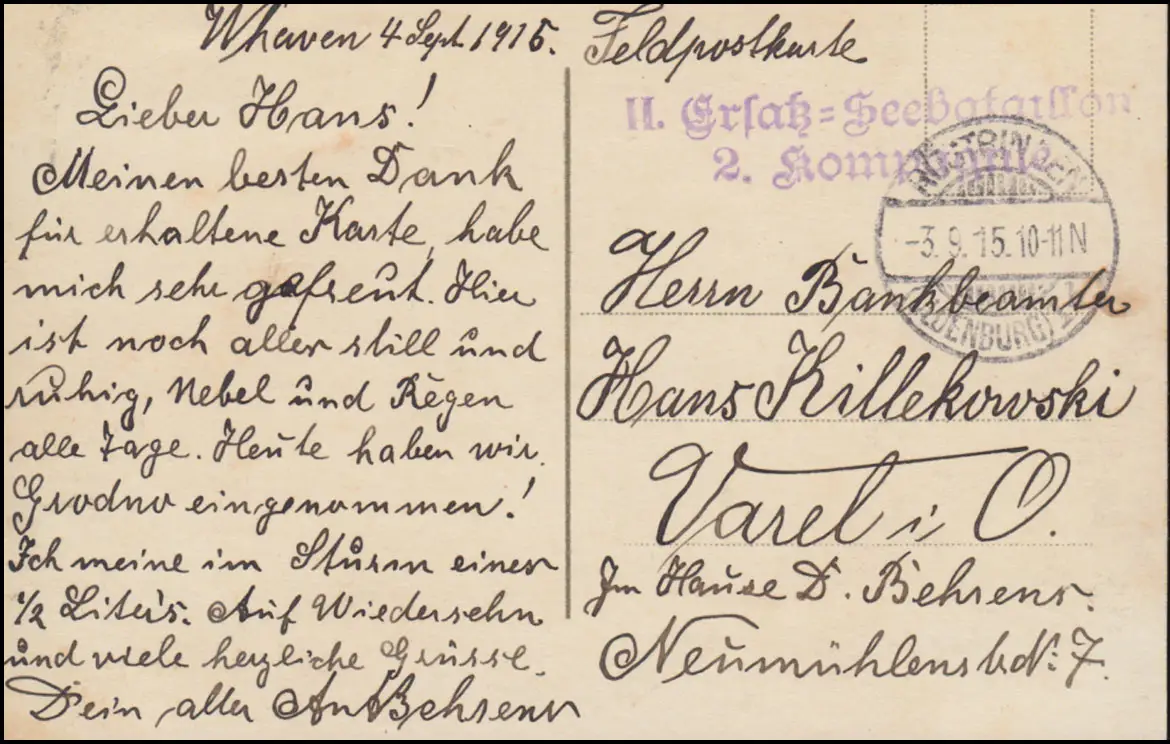 Whaven 4 Sept. 1915.
Lieber Hans!
Meinen besten Dank
für erhaltene Karte, habe
mich sehr gefreut. Hier
ist noch alles still und
ruhig, Nebel und Regen
alle Tage. Heute haben wir
Grodno eingenommen!
Ich meine im Sturm einen
1/2 Liter's. Auf Wiedersehn
und viele herzliche Grüsse.
Dein alter Behrens
Feldpostkarte
II. Ersatz=Seebataillon
2. Kompagnie
RÜSTRINGEN
-3.9.15.10-11N
(OLDENBURG)
Herrn Bankbeamter
Hans Killekowski
Varel i O.
Im Hause D. Behrens.
Neumühlenstr. 7.